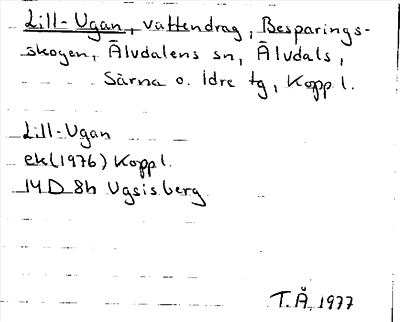 Lill-Ugan, vattendrag, Besparings-
skogen, Älvdalens sn, Älvdals,
Särna o. Idre tg, Kopp l.
Lill-Ugan
ek(1976) Kopp l.
14D 8h Ugsisberg
T.Å, 1977